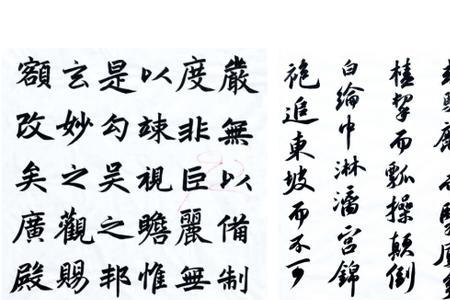 桂挐而瓢操顛倒
白綸巾淋漓宮錦
袍追東坡而不可
嚴無以備制
度非臣麗無
以竦視瞻惟
是勾吴之邦
玄妙之觀賜
額改矣廣殿